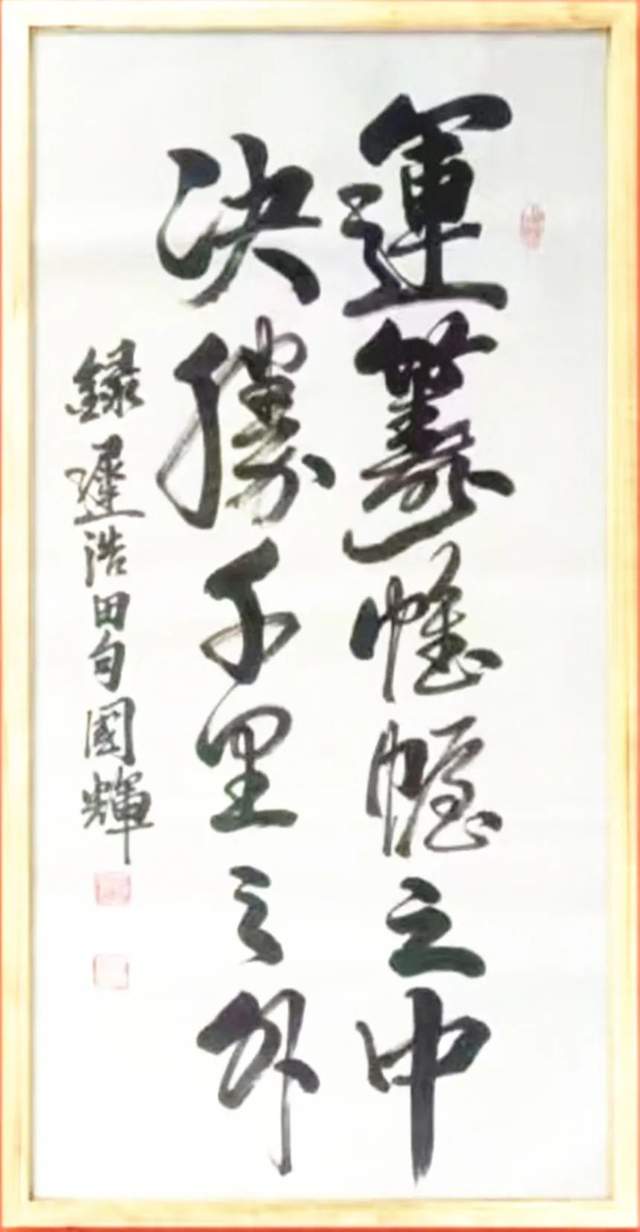 運籌帷幄之中
決勝千里之外
錄遲浩田句國輝